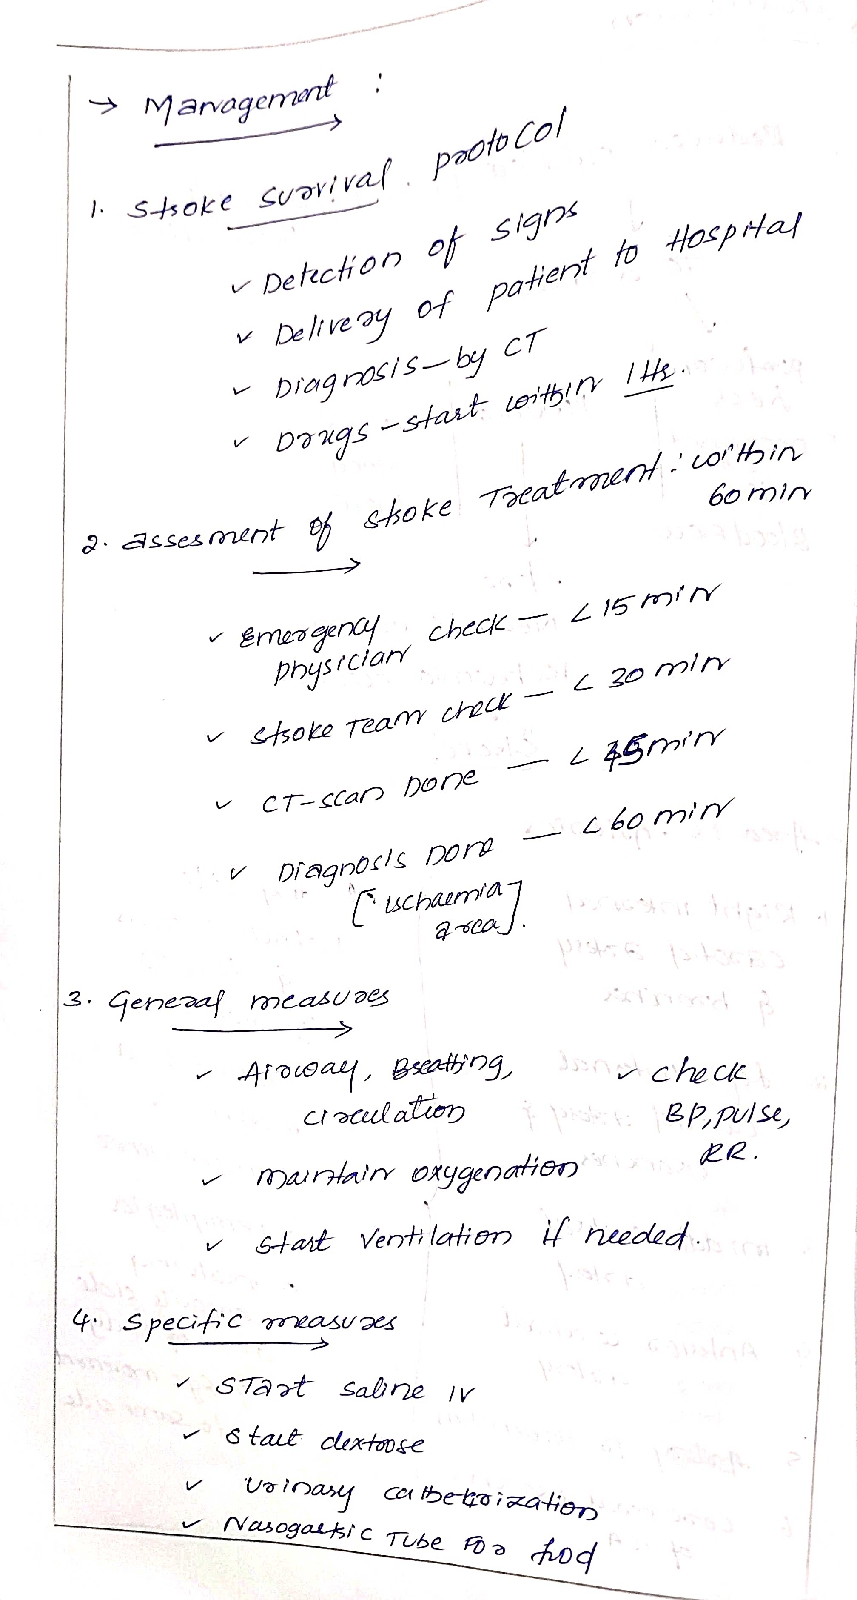 → Management :
1. Stroke survival protocol
✓ Detection of signs
✓ Delivery of patient to Hospital
✓ Diagnosis – by CT
✓ Drugs – start within 1 Hr.
2. assesment of stroke Treatment : within
60 min
✓ Emergency
physician check – < 15 min
✓ stroke Team check – < 30 min
✓ CT-scan Done – < 45 min
✓ Diagnosis Done – < 60 min
[ischaemia
area].
3. General measures
✓ Airway, Breathing,
circulation
✓ check
BP, pulse,
RR.
✓ maintain oxygenation
✓ start ventilation if needed.
4. Specific measures
✓ Start saline IV
✓ start dextrose
✓ Urinary catheterization
✓ Nasogastric Tube For food